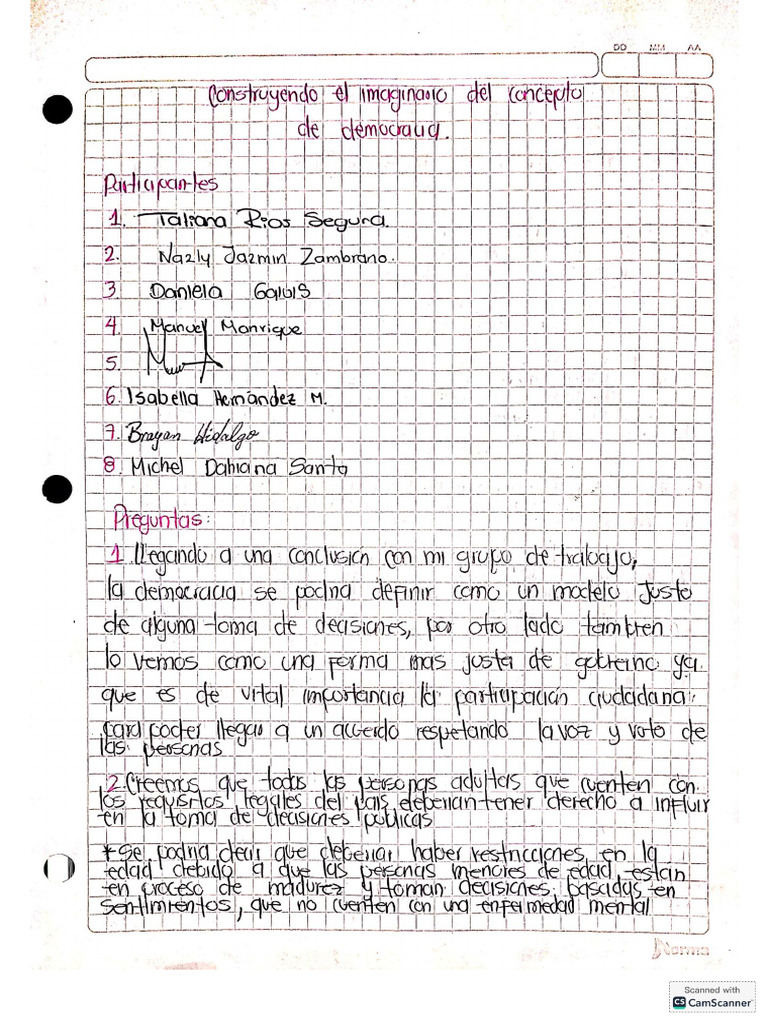 DD MM AA
Construyendo el imaginario del concepto
de democracia.
Participantes
1. Taliana Rios Segura.
2. Nazly Jazmin Zambrano.
3 Daniela Galvis
4 Manuel Manrique
5.
6. Isabella Hernandez M.
7. Brayan Hidalgo
8. Michel Dahiana Santa
Preguntas:
1. llegando a una conclusion con mi grupo de trabajo,
la democracia se podria definir como un modelo justo
de alguna toma de decisiones, por otro lado tambien
lo vemos como una forma mas justa de gobierno ya
que es de vital importancia la participación ciudadana
para poder llegar a un acuerdo respetando la voz y voto de
las personas
2. Creemos que todas las personas adultas que cuenten con
los requisitos legales del pais deberian tener derecho a influir
en la toma de decisiones publicas
* Se podria decir que deberian haber restricciones, en la
edad debido a que las personas menores de edad, estan
en proceso de madurez y toman decisiones basadas en
sentimientos, que no cuenten con una enfermedad mental
Norma
Scanned with
CS CamScanner